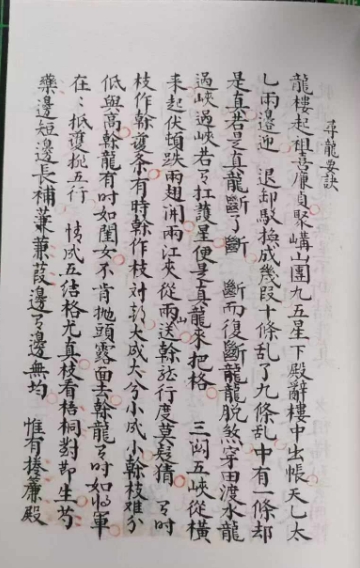 尋龍要訣
龍樓起祖意廉貞聚講山團九五星下殿辭樓中出帳天乚太
乚兩邉迎 退卸駁換成幾段十條乱了九條乱中有一條却
是真若是真龍斷了斷 斷而復斷龍龍脫煞穿田渡水龍
過峽過峽若有扛護星便是真龍来把格 三闗五峽從橫
来起伏頓跌兩翅開兩江夾從兩山送幹龍行度莫疑猜 有时
枝作幹護条有時幹作枝 大成大分小成小幹枝难分
低與高幹龍有时如閨女不肯抛頭露面去幹龍有时如将軍
在 抵護 五行 情成五結格尤真枝看梧桐對節生芍
藥邊短邊長補蒹蒹葭邊有邊無均 惟有捲簾殿